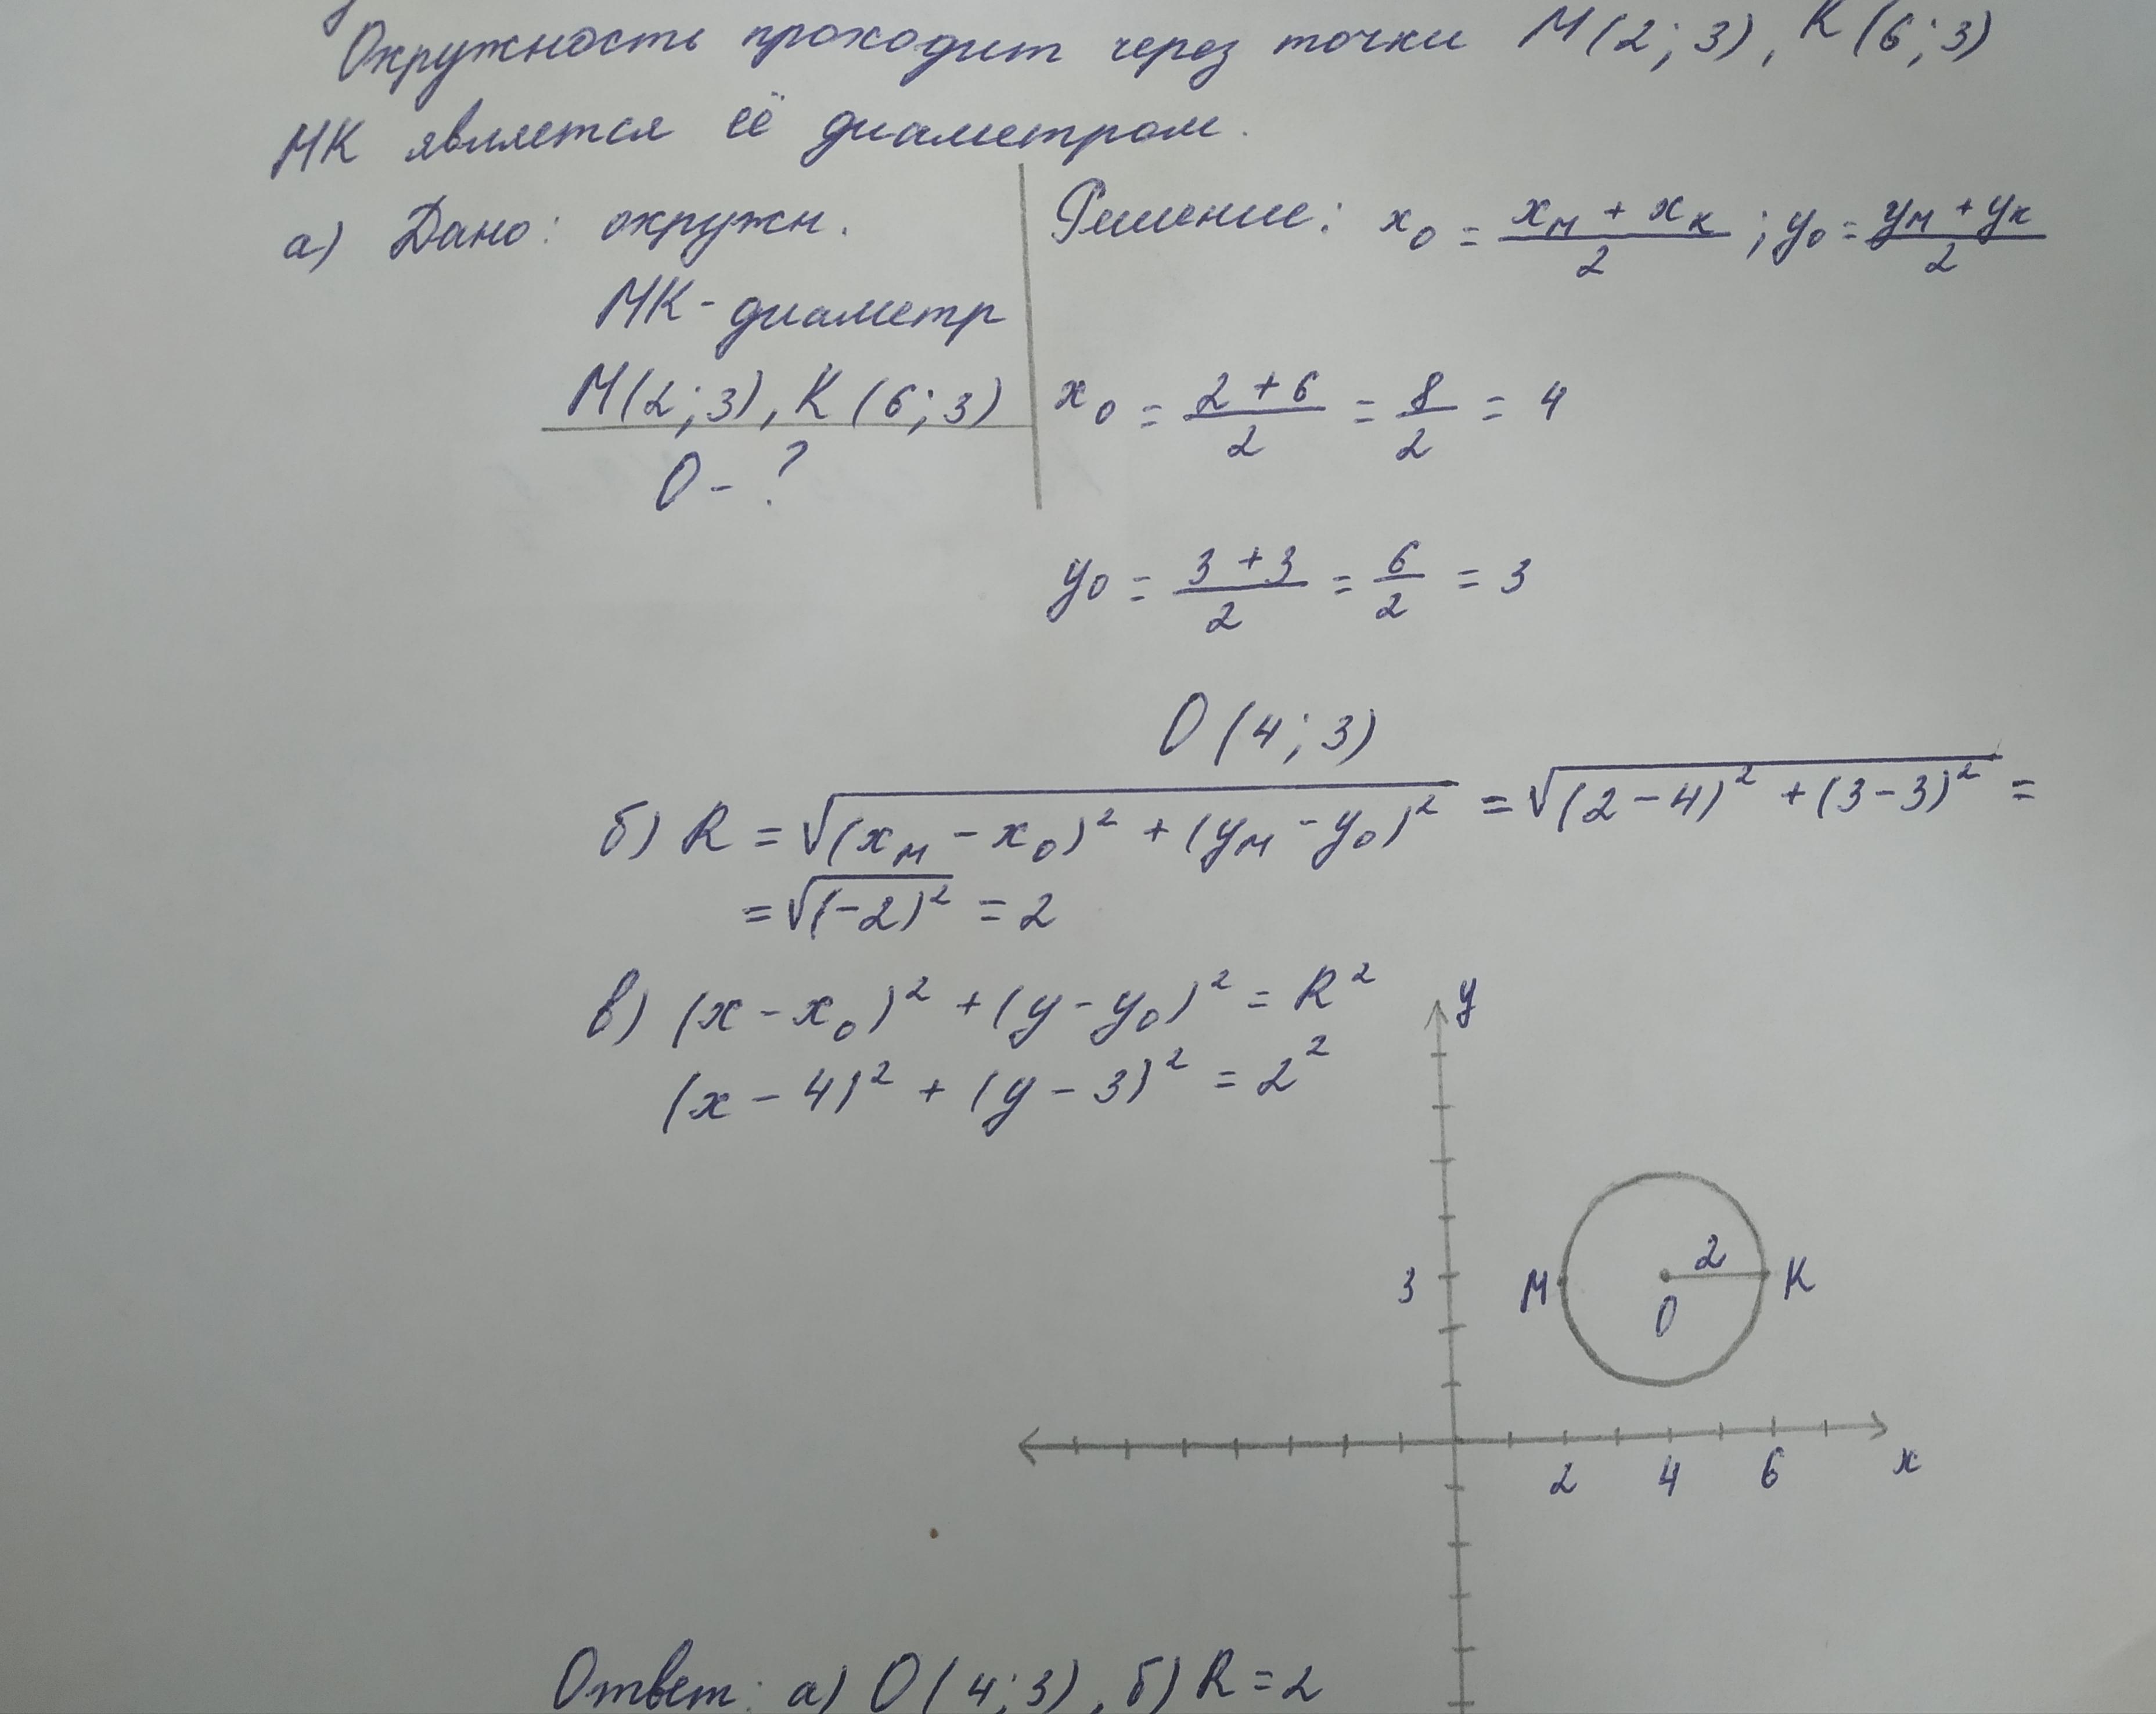 Окружность проходит через точки М(2;3), К(6;3)
МК является её диаметром.
а) Дано: окружн.
МК - диаметр
М(2;3), К(6;3)
О - ?
Решение: x₀ = (x_М + x_К)/2 ; y₀ = (y_М + y_К)/2
x₀ = (2 + 6)/2 = 8/2 = 4
y₀ = (3 + 3)/2 = 6/2 = 3
О(4;3)
б) R = √((x_М - x₀)² + (y_М - y₀)²) = √((2 - 4)² + (3 - 3)²) =
= √((-2)²) = 2
в) (x - x₀)² + (y - y₀)² = R²
(x - 4)² + (y - 3)² = 2²
y
2
3 М О К
2 4 6 x
Ответ: а) О(4;3), б) R = 2